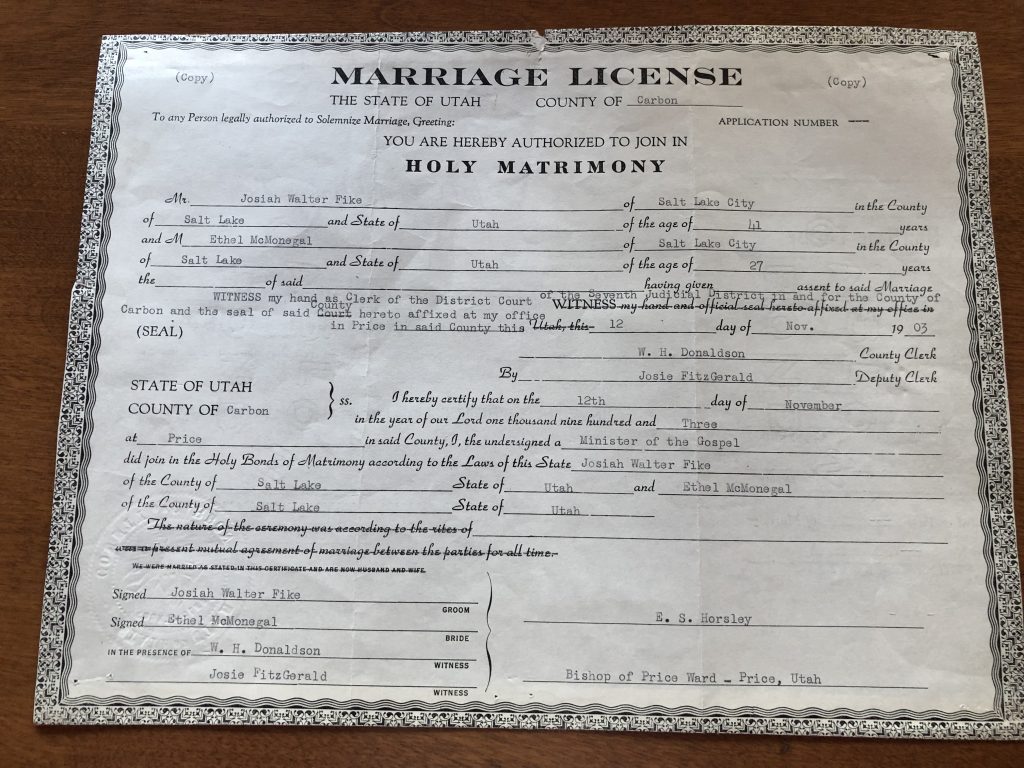 (Copy) MARRIAGE LICENSE (Copy)
THE STATE OF UTAH COUNTY OF Carbon
To any Person legally authorized to Solemnize Marriage, Greeting: APPLICATION NUMBER ---
YOU ARE HEREBY AUTHORIZED TO JOIN IN
HOLY MATRIMONY
Mr. Josiah Walter Fike of Salt Lake City in the County
of Salt Lake and State of Utah of the age of 41 years
and M Ethel McMonegal of Salt Lake City in the County
of Salt Lake and State of Utah of the age of 27 years
the of said having given assent to said Marriage
WITNESS my hand as Clerk of the District Court of the Seventh Judicial District in and for the County of
County
Carbon and the seal of said Court hereto affixed at my office WITNESS my hand and official seal hereto affixed at my office in
(SEAL) in Price in said County this Utah, this 12 day of Nov. 1903
W. H. Donaldson County Clerk
By Josie FitzGerald Deputy Clerk
STATE OF UTAH
COUNTY OF Carbon } ss. I hereby certify that on the 12th day of November
in the year of our Lord one thousand nine hundred and Three
at Price in said County, I, the undersigned a Minister of the Gospel
did join in the Holy Bonds of Matrimony according to the Laws of this State Josiah Walter Fike
of the County of Salt Lake State of Utah and Ethel McMonegal
of the County of Salt Lake State of Utah
The nature of the ceremony was according to the rites of
present mutual agreement of marriage between the parties for all time.
WE WERE MARRIED AS STATED IN THIS CERTIFICATE AND ARE NOW HUSBAND AND WIFE.
Signed Josiah Walter Fike
GROOM
Signed Ethel McMonegal
BRIDE
IN THE PRESENCE OF W. H. Donaldson
WITNESS
Josie FitzGerald
WITNESS
E. S. Horsley
Bishop of Price Ward - Price, Utah